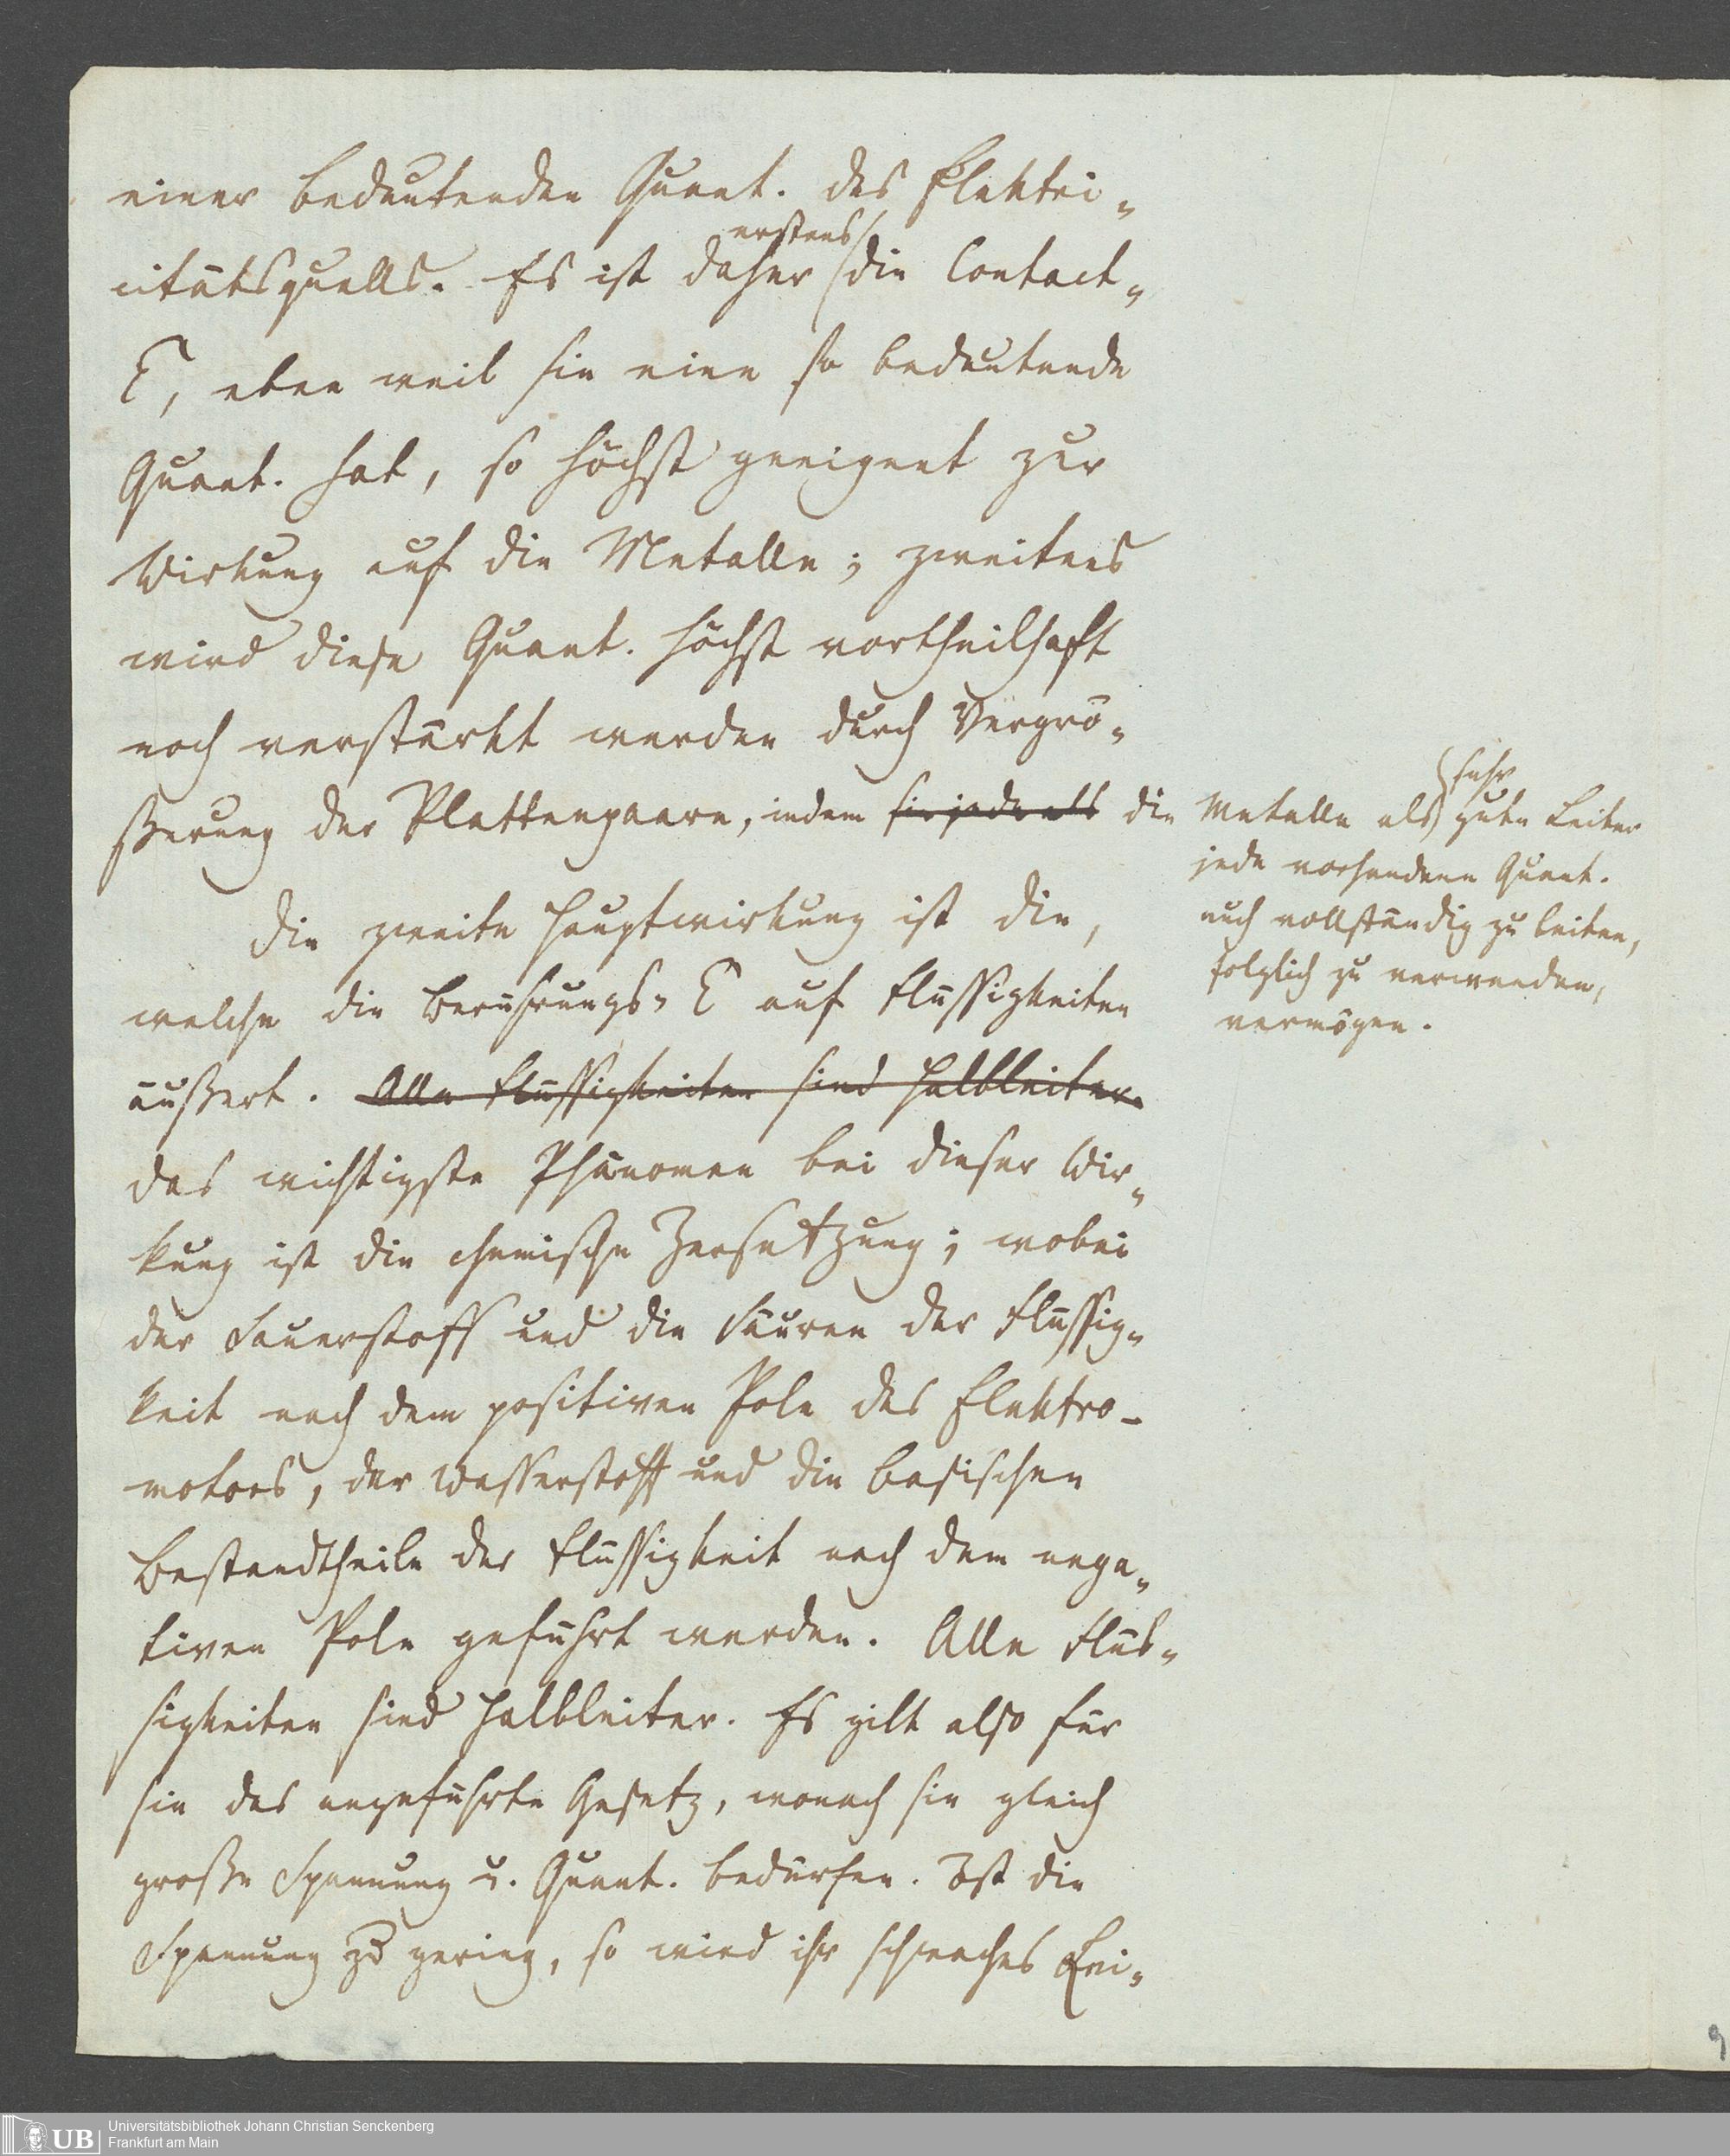 einer bedeutenden Quant. des Elektri-
citätsquells. Es ist daher erstens die Contact-
E, eben weil sie eine so bedeutende
Quant. hat, so höchst geeignet zur
Wirkung auf die Metalle; zweitens
wird diese Quant. höchst vortheilhaft
noch verstärkt werden durch Vergrö-
ßerung der Plattenpaare, indem sie jede als die
Metalle als sehr gute Leiter
jede vorhandene Quant.
auch vollständig zu leiten,
folglich zu verwenden,
vermögen.
Die zweite Hauptwirkung ist die,
welche die Berührungs-E auf Flüssigkeiten
äußert. Alle Flüssigkeiten sind Halbleiter.
Das wichtigste Phänomen bei dieser Wir-
kung ist die chemische Zersetzung; wobei
der Sauerstoff und die Säuren der Flüssig-
keit nach dem positiven Pole des Elektro-
motors, der Wasserstoff und die basischen
Bestandtheile der Flüssigkeit nach dem nega-
tiven Pole geführt werden. Alle Flüs-
sigkeiten sind Halbleiter. Es gilt also für
sie das angeführte Gesetz, wonach sie gleich
große Spannung u. Quant. bedürfen. Ist die
Spannung zu gering, so wird ihr schwaches Lei-
9
UB Universitätsbibliothek Johann Christian Senckenberg
Frankfurt am Main